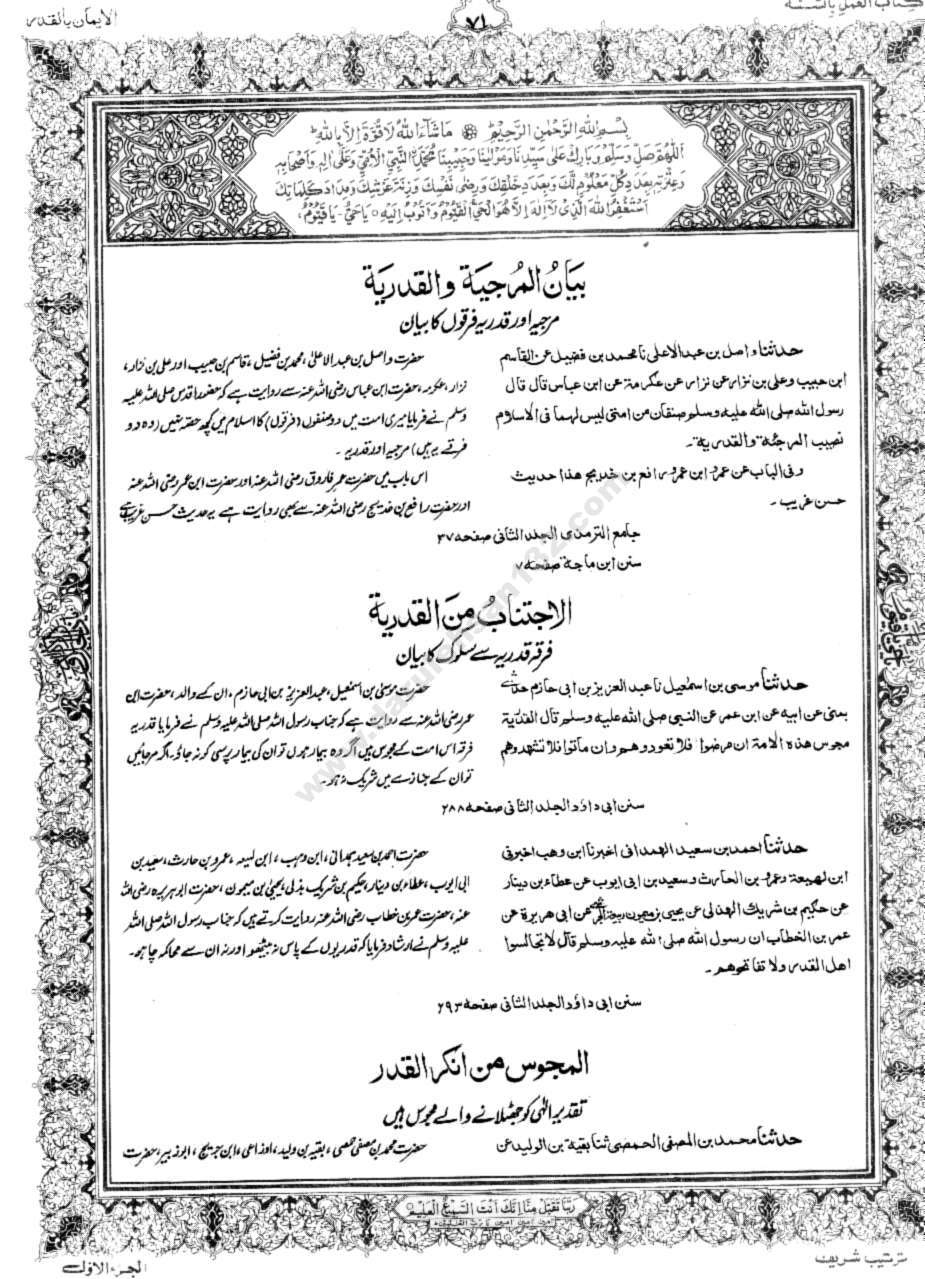 كتاب العمل بالسنة
۷۱
الايمان بالقدر
بِسْمِ اللهِ الرَّحْمٰنِ الرَّحِيْمِ مَاشَآءَ اللهُ لَا قُوَّةَ اِلَّا بِاللهِ
اَللّٰهُمَّ صَلِّ وَسَلِّمْ وَبَارِكْ عَلٰى سَيِّدِنَا وَمَوْلَيْنَا وَحَبِيْبِنَا مُحَمَّدِ النَّبِيِّ الْاُمِّيِّ وَعَلٰى اٰلِهٖ وَاَصْحَابِهٖ
وَعِتْرَتِهٖ بِعَدَدِ كُلِّ مَعْلُوْمٍ لَّكَ وَبِعَدَدِ خَلْقِكَ وَرِضٰى نَفْسِكَ وَزِنَةِ عَرْشِكَ وَمِدَادِ كَلِمَاتِكَ
اَسْتَغْفِرُ اللهَ الَّذِيْ لَآ اِلٰهَ اِلَّا هُوَ الْحَيُّ الْقَيُّوْمُ وَاَتُوْبُ اِلَيْهِ يَا حَيُّ يَا قَيُّوْمُ
بيَانُ المُرجيَة والقدريَة
مرجیہ اور قدریہ فرقوں کا بیان
حدثنا واصل بن عبد الاعلى نا محمد بن فضيل عن القاسم
ابن حبيب وعلى بن نزار عن نزار عن عكرمة عن ابن عباس قال قال
رسول الله صلى الله عليه وسلم صنفان من امتى ليس لهما فى الاسلام
نصيب المرجئة والقدرية۔
وفى الباب عن عمر و ابن عمر و رافع بن خديج هذا حديث
حسن غريب۔
حضرت واصل بن عبد الاعلیٰ، محمد بن فضیل، قاسم بن حبیب اور علی بن نزار،
نزار، عکرمہ، حضرت ابن عباس رضی اللہ عنہ سے روایت ہے کہ حضور اقدس صلی اللہ علیہ
وسلم نے فرمایا میری امت میں دو صنفوں (فرقوں) کا اسلام میں کچھ حصّہ نہیں (وہ دو
فرقے یہ ہیں) مرجیہ اور قدریہ۔
اس باب میں حضرت عمر فاروق رضی اللہ عنہ اور حضرت ابن عمر رضی اللہ عنہ
اور حضرت رافع بن خدیج رضی اللہ عنہ سے بھی روایت ہے یہ حدیث حسن غریب ہے
جامع الترمذى الجلد الثانى صفحه ۳۷
سنن ابن ماجة صفحه ۷
الاجتنابُ مِنَ القدرية
فرقہ قدریہ سے سلوک کا بیان
حدثنا موسى بن اسمٰعيل نا عبد العزيز بن ابى حازم
بمنى عن ابيه عن ابن عمر عن النبى صلى الله عليه وسلم قال القدرية
مجوس هذه الامة ان مرضوا فلا تعودوهم وان ماتوا فلا تشهدوهم
حضرت موسیٰ بن اسمٰعیل، عبد العزیز بن ابی حازم، ان کے والد، حضرت ابن
عمر رضی اللہ عنہ سے روایت ہے کہ جناب رسول اللہ صلی اللہ علیہ وسلم نے فرمایا قدریہ
فرقہ اس امت کے مجوس ہیں اگر وہ بیمار ہوں تو ان کی بیمار پرسی کو نہ جاؤ۔ اگر مر جائیں
تو ان کے جنازے میں شریک نہ ہو۔
سنن ابى داؤد الجلد الثانى صفحه ۲۸۸
حدثنا احمد بن سعيد الهمدانى اخبرنا ابن وهب اخبرنى
ابن لهيعة وعمرو بن الحارث وسعيد بن ابى ايوب عن عطاء بن دينار
عن حكيم بن شريك الهذلى عن يحيى بن ميمون عن ربيعة عن ابى هريرة عن
عمر بن الخطاب ان رسول الله صلى الله عليه وسلم قال لا تجالسوا
اهل القدر ولا تفاتحوهم۔
حضرت احمد بن سعید ہمدانی، ابن وہب، ابن لہیعہ، عمرو بن حارث، سعید بن
ابی ایوب، عطاء بن دینار، حکیم بن شریک ہذلی، یحییٰ بن میمون، حضرت ابو ہریرہ رضی اللہ
عنہ، حضرت عمر بن خطاب رضی اللہ عنہ روایت کرتے ہیں کہ جناب رسول اللہ صلی اللہ
علیہ وسلم نے ارشاد فرمایا کہ قدریوں کے پاس نہ بیٹھو اور نہ ان سے محاکمہ چاہو۔
سنن ابى داؤد الجلد الثانى صفحه ۲۹۳
المجوس من انكر القدر
تقدیر الٰہی کو جھٹلانے والے مجوس ہیں
حدثنا محمد بن المصفى الحمصى ثنا بقية بن الوليد عن
حضرت محمد بن مصفٰی حمصی، بقیہ بن ولید، اوزاعی، ابن جریج، ابو زبیر، حضرت
رَبَّنَا تَقَبَّلْ مِنَّا اِنَّكَ اَنْتَ السَّمِيْعُ الْعَلِيْمُ
ترتیب شریف
الجزء الاوّل